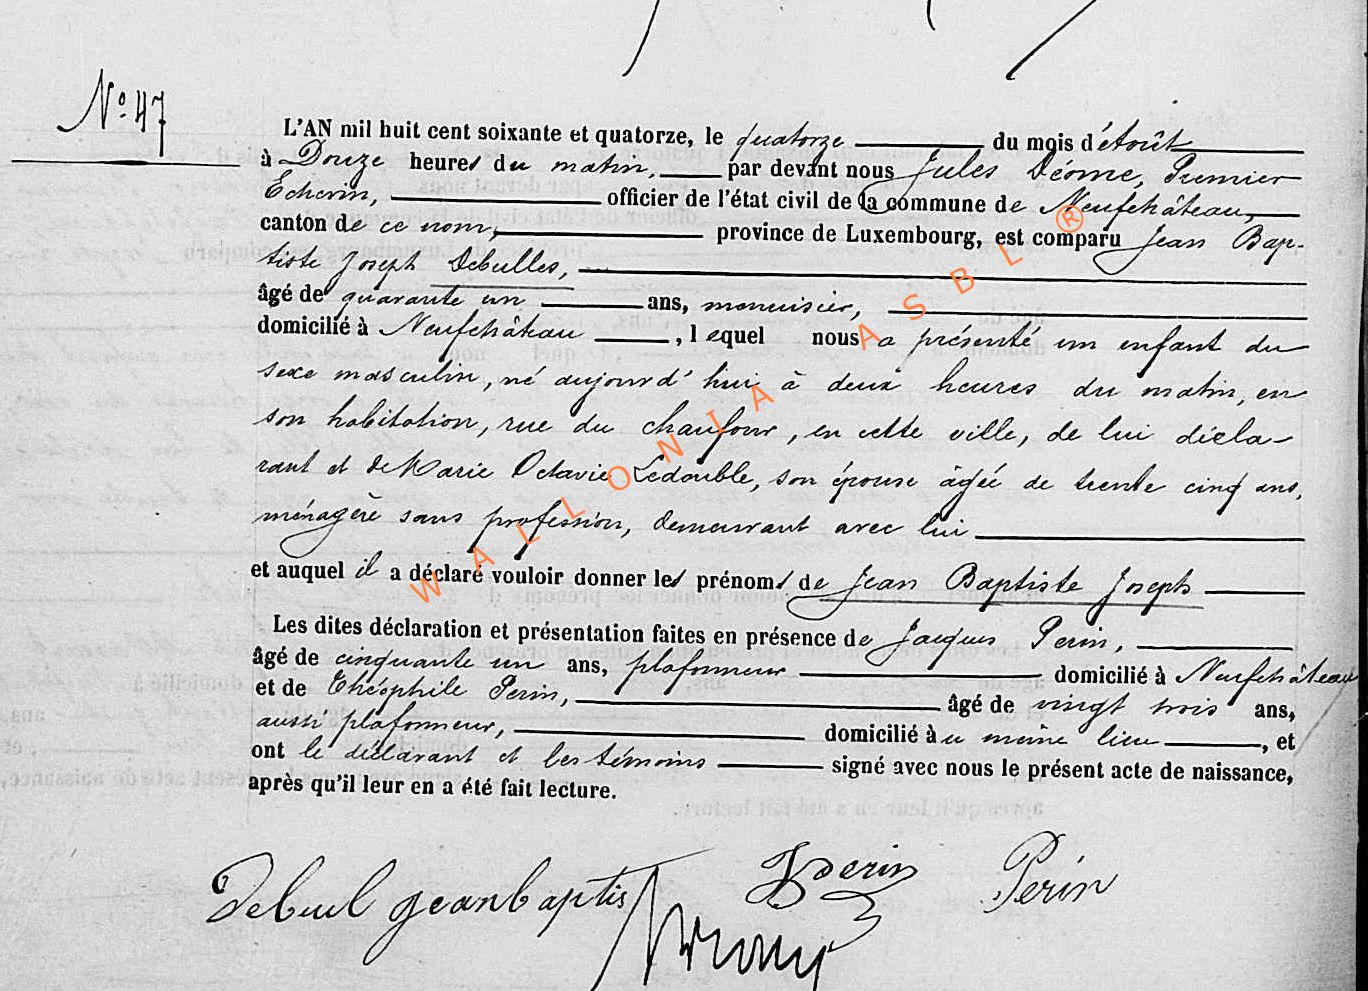 N° 47
L'AN mil huit cent soixante et quatorze, le quatorze du mois d'Août
à Douze heures du matin, par devant nous Jules Déome, Premier
Echevin, officier de l'état civil de la commune de Neufchâteau,
canton de ce nom, province de Luxembourg, est comparu Jean Bap-
tiste Joseph Debulles,
âgé de quarante un ans, menuisier,
domicilié à Neufchâteau, lequel nous a présenté un enfant du
sexe masculin, né aujourd'hui à deux heures du matin, en
son habitation, rue du chaufour, en cette ville, de lui décla-
rant et de Marie Octavie Ledouble, son épouse âgée de trente cinq ans,
ménagère sans profession, demeurant avec lui
et auquel il a déclaré vouloir donner les prénoms de Jean Baptiste Joseph
Les dites déclaration et présentation faites en présence de Jacques Perin,
âgé de cinquante un ans, plafonneur domicilié à Neufchâteau
et de Théophile Perin, âgé de vingt trois ans,
aussi plafonneur, domicilié au même lieu, et
ont le déclarant et les témoins signé avec nous le présent acte de naissance,
après qu'il leur en a été fait lecture.
Debul jeanbaptis Perin Perin
WALLONIA ASBL ®